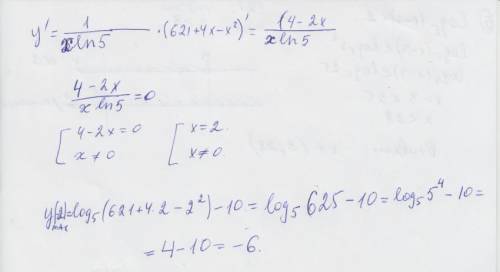 y' = 1/(x ln5) · (621+4x-x²)' = (4-2x/(x ln5)
(4-2x)/(x ln5) = 0.
[4-2x=0 [x=2.
x≠0 x≠0.
y(2)max = log₅(621+4·2-2²)-10 = log₅625-10 = log₅5⁴-10=
=4-10=-6.